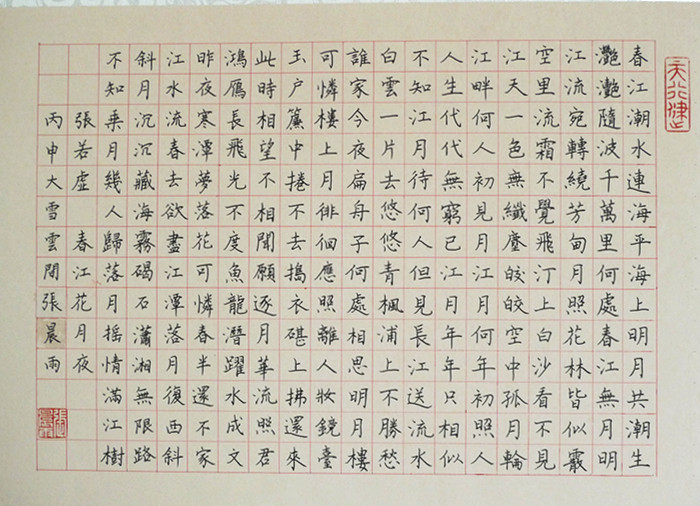 春江潮水連海平海上明月共潮生
灩灩隨波千萬里何處春江無月明
江流宛轉繞芳甸月照花林皆似霰
空里流霜不覺飛汀上白沙看不見
江天一色無纖塵皎皎空中孤月輪
江畔何人初見月江月何年初照人
人生代代無窮已江月年年只相似
不知江月待何人但見長江送流水
白雲一片去悠悠青楓浦上不勝愁
誰家今夜扁舟子何處相思明月樓
可憐樓上月徘徊應照離人妝鏡臺
玉户簾中捲不去搗衣碪上拂還來
此時相望不相聞願逐月華流照君
鴻雁長飛光不度魚龍潛躍水成文
昨夜寒潭夢落花可憐春半還不家
江水流春去欲盡江潭落月復西斜
斜月沉沉藏海霧碣石瀟湘無限路
不知乘月幾人歸落月摇情滿江樹
張若虛 春江花月夜
丙申大雪雲閒張晨雨